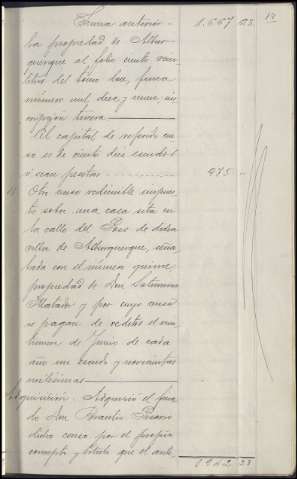 Suma anterior - 1.667 23 14
la propiedad de Albur-
querque al folio ciento vein-
titres del tomo doce, finca
número mil, diez y nueve, ins-
cripción tercera
El capital de referido cen-
so es de ciento diez
y cinco pesetas 275 -
11 Otro censo redimible impues-
to sobre una casa sita en
la calle del Pozo de dicha
villa de Alburquerque, seña-
lada con el número quince,
propiedad de Don Saturnino
y por cuyo censo
se pagan de reditos el vein-
ti de Junio de cada
año un escudo y novecientas
milésimas
Adquisición. Adquirió el fina-
do Don Rosado
dicho censo por el propio
concepto y título que el ante-
1942 23